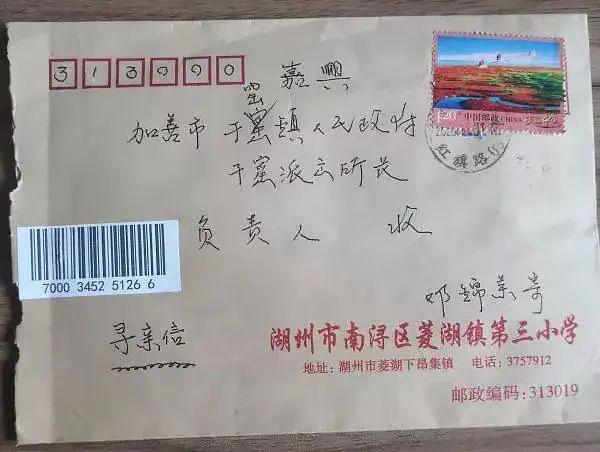 313000
嘉興
窑
加善市干窯镇人民政府
干窯派出所长
负责人 收
1.20 中国邮政 CHINA
红旗路
7000 3452 5126 6
邓錦
寻亲信
湖州市南浔区菱湖镇第三小学
地址：湖州市菱湖下昂集镇 电话：3757912
邮政编码：313019